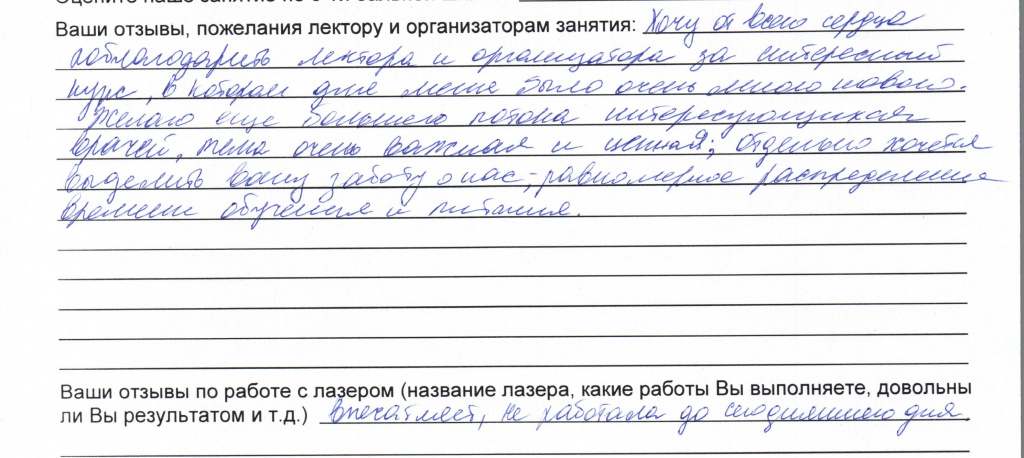 Оцените наше занятие по 5-ти бальной
Ваши отзывы, пожелания лектору и организаторам занятия: Хочу от всего сердца
поблагодарить лектора и организатора за интересный
курс, в котором для меня было очень много нового.
Желаю еще большего потока интересующихся
врачей, тема очень важная и ценная; отдельно хочется
выделить вашу заботу о нас; равномерное распределение
времени обучения и питания.
Ваши отзывы по работе с лазером (название лазера, какие работы Вы выполняете, довольны
ли Вы результатом и т.д.) впечатляет, не работала до сегодняшнего дня.